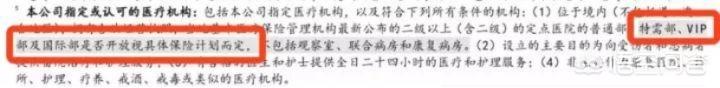 本公司指定或认可的医疗机构：包括本公司指定医疗机构，以及符合下列所有条件的机构：（1）位于境内
保险管理机构最新公布的二级以上（含二级）的定点医院的普通部 特需部、VIP
部及国际部是否开放视具体保险计划而定， 不包括观察室、联合病房和康复病房。（2）设立的主要目的为向受伤者和患病者
医生和护士提供全日二十四小时的医疗和护理服务；（4）
所、护理、疗养、戒酒、戒毒或类似的医疗机构。